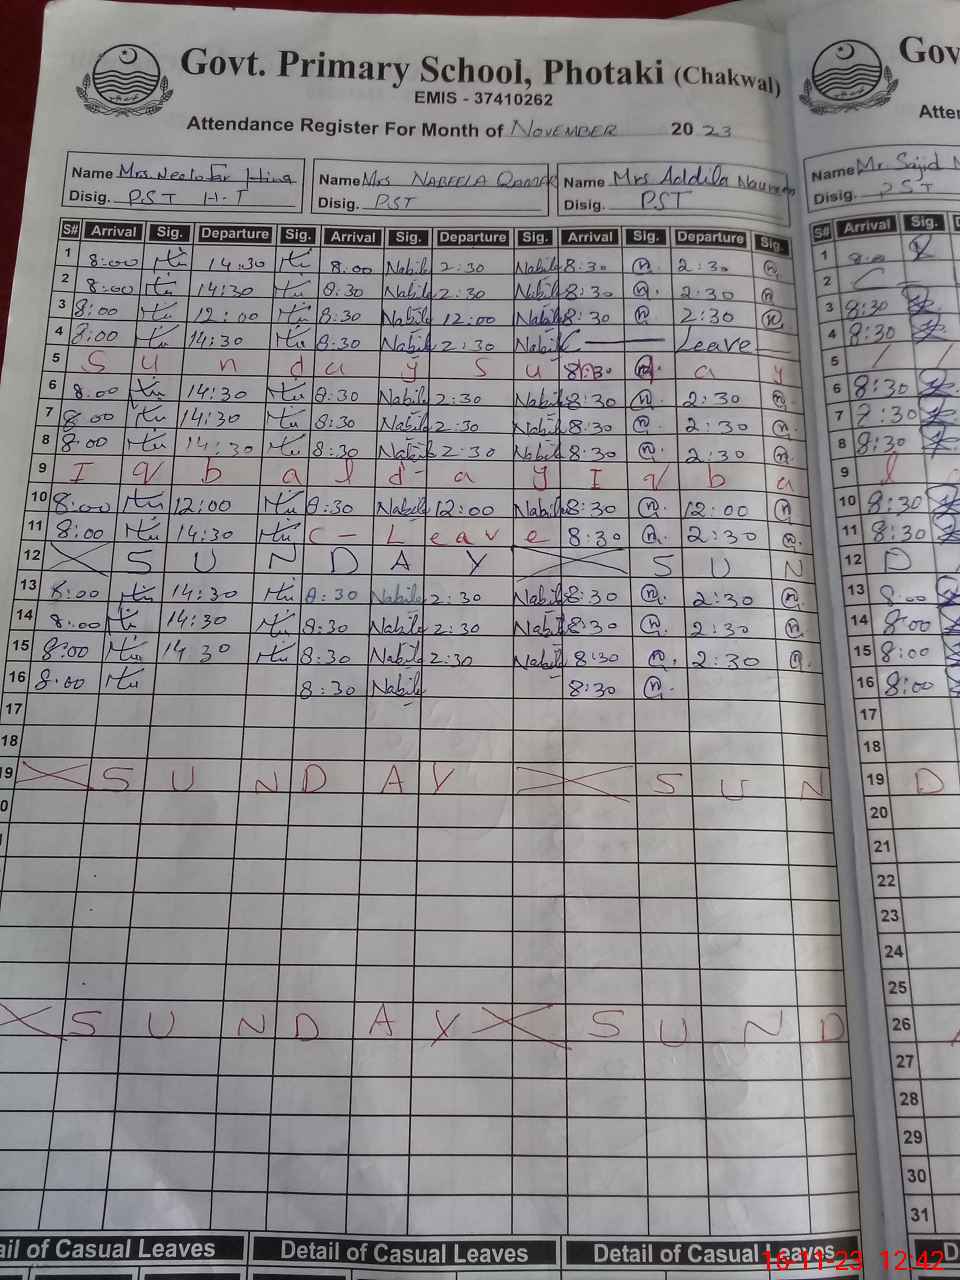 Govt. Primary School, Photaki (Chakwal)
EMIS - 37410262
Attendance Register For Month of NOVEMBER 2023
Name Mrs Neelofar Hina
Disig. PST H.T
Name Mrs NABEELA
Disig. PST
Name Mrs Addila
Disig. PST
S# Arrival Sig. Departure Sig. Arrival Sig. Departure Sig. Arrival Sig. Departure Sig.
1 8:00 14:30 8:00 Nabila 2:30 Nabila 8:30 n 2:30 n
2 8:00 14:30 8:30 Nabila 2:30 Nabila 8:30 n 2:30 n
3 8:00 12:00 8:30 Nabila 12:00 Nabila 8:30 n 2:30 n
4 8:00 14:30 8:30 Nabila 2:30 Nabila C Leave
5 S u n d a y S u 8:30 a y
6 8:00 14:30 8:30 Nabila 2:30 Nabila 8:30 n 2:30 n
7 8:00 14:30 8:30 Nabila 2:30 Nabila 8:30 n 2:30 n
8 8:00 14:30 8:30 Nabila 2:30 Nabila 8:30 n 2:30 n
9 I q b a l d a y I q b a
10 8:00 12:00 8:30 Nabila 12:00 Nabila 8:30 n 12:00 n
11 8:00 14:30 C - Leave 8:30 n 2:30 n
12 S U N D A Y S U N
13 8:00 14:30 8:30 Nabila 2:30 Nabila 8:30 n 2:30 n
14 8:00 14:30 8:30 Nabila 2:30 Nabila 8:30 n 2:30 n
15 8:00 14:30 8:30 Nabila 2:30 Nabila 8:30 n 2:30 n
16 8:00 8:30 Nabila 8:30 n
17
18
19 S U N D A Y S U N
S U N D A Y S U N D
Detail of Casual Leaves Detail of Casual Leaves
Gov
Atten
Name Mr. Sajid
Disig. PST
S# Arrival Sig.
1 8:00
2 C
3 8:30
4 8:30
5
6 8:30
7 7:30
8 8:30
9 l
10 8:30
11 8:30
12 D
13 8:00
14 8:00
15 8:00
16 8:00
17
18
19 D
20
21
22
23
24
25
26
27
28
29
30
31
D
16-11-23 12:42